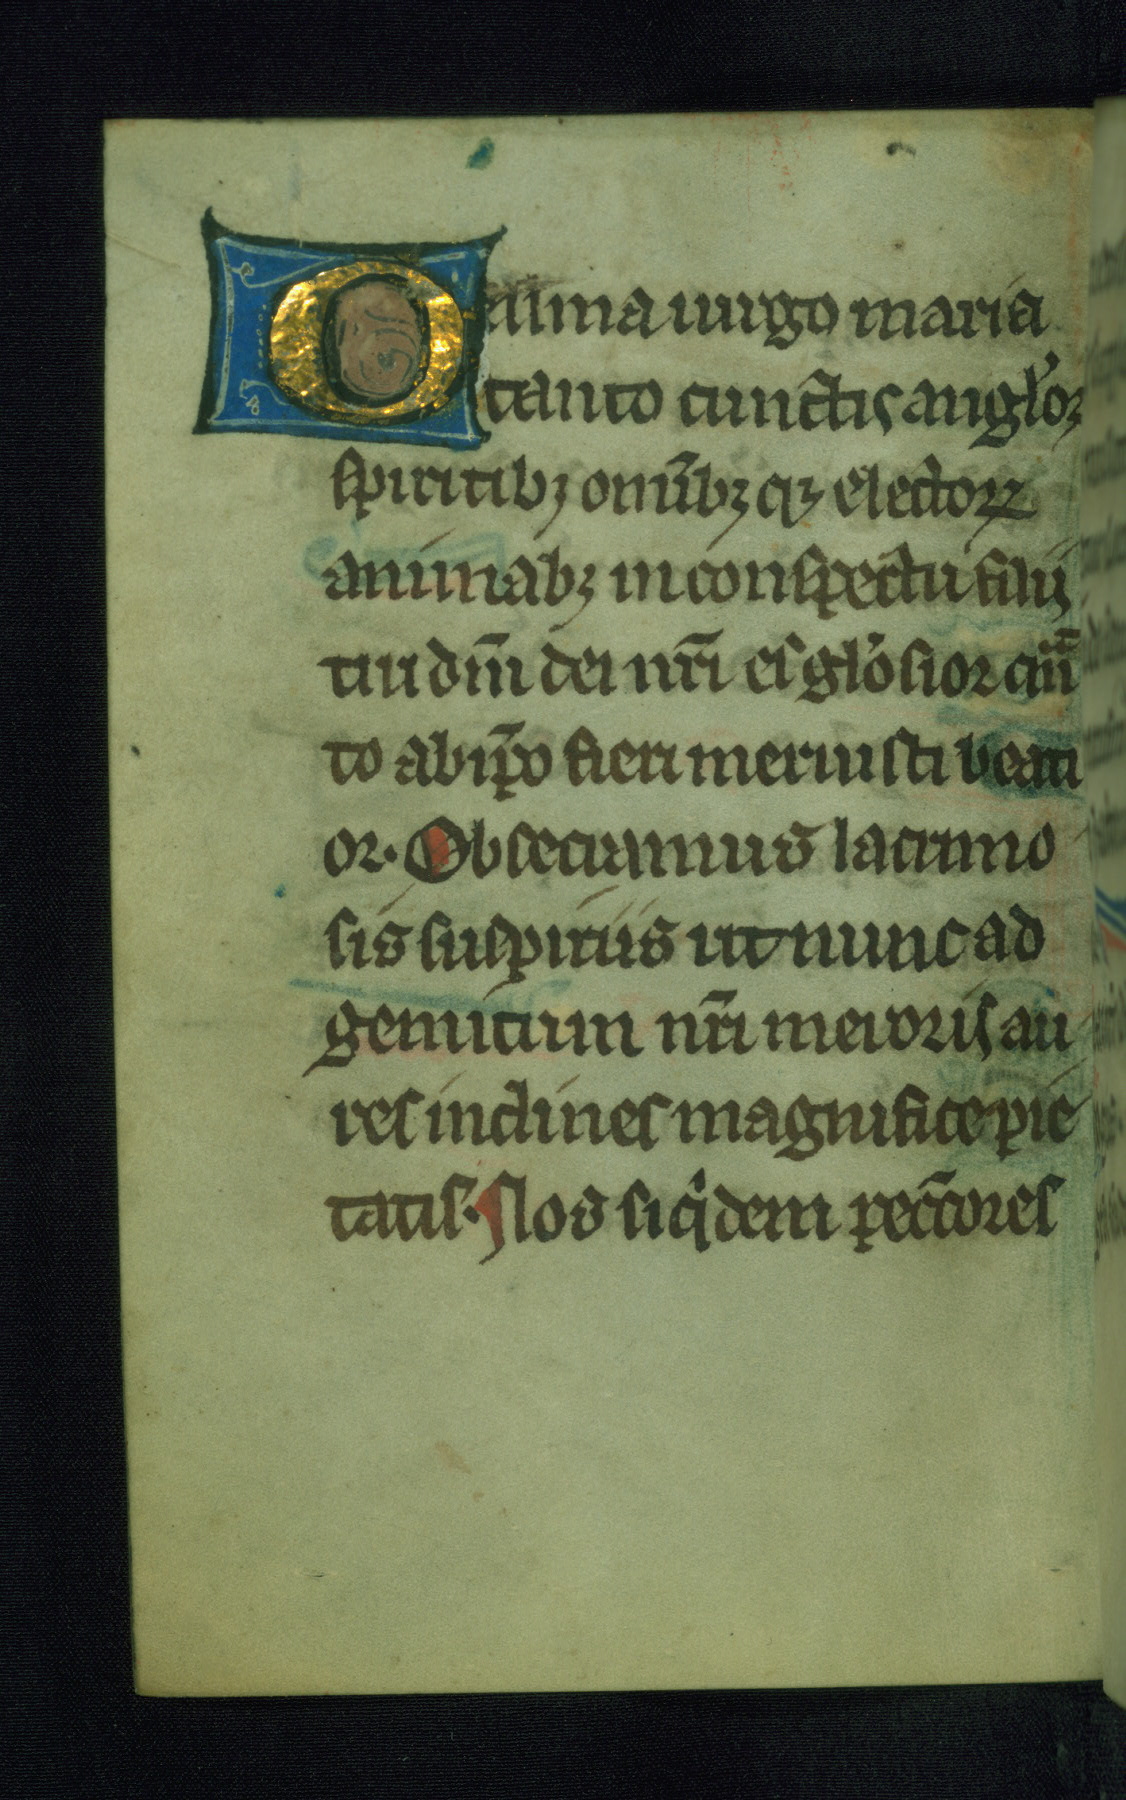 O alma uirgo maria
tanto cunctis angl'oꝝ
spiritibꝫ omībꝫ qꝫ electorꝝ
animabꝫ in conspectu filij
tui dn̄i dei nr̄i es gl'osior q̄n
to ab ip̄o fieri meruisti beati
or. Obsecramus lacrimo
sis suspiriis ut nunc ad
gemitum nr̄i meroris au
res inclines magnifice pie
tatis. Nos siqidem peccōres